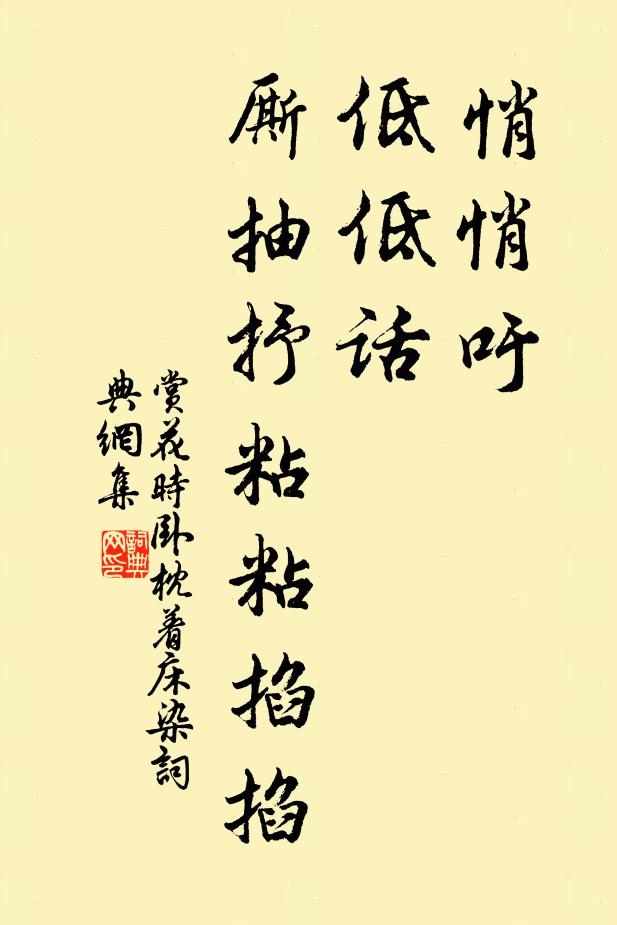 悄悄吁
低低话
厮抽抒粘粘掐掐
赏花時卧枕着床染詞
典網集
詞典
网印